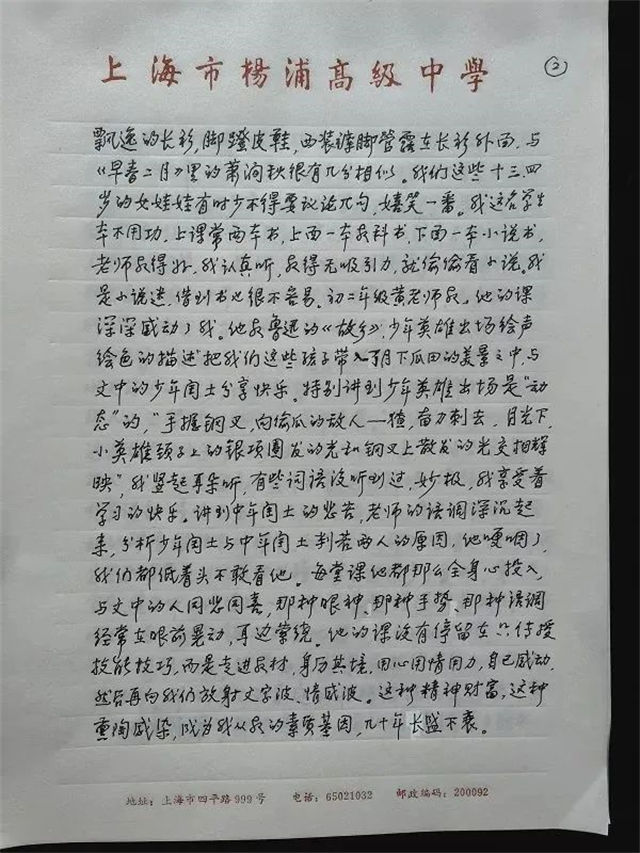 上海市楊浦高級中學
②
飘逸的长衫,脚蹬皮鞋,西装裤脚管露在长衫外面,与
《早春二月》里的萧涧秋很有几分相似。我们这些十三、四
岁的女娃娃有时少不得要议论几句,嬉笑一番。我这名学生
本不用功,上课常两本书,上面一本教科书,下面一本小说书,
老师教得好,我认真听,教得无吸引力,就偷偷看小说。我
是小说迷,借到书也很不容易。初二年级黄老师教。他的课
深深感动了我。他教鲁迅的《故乡》,少年英雄出场绘声
绘色的描述把我们这些孩子带入了月下瓜田的美景之中,与
文中的少年闰土分享快乐。特别讲到少年英雄出场是“动
态”的,“手握钢叉,向偷瓜的敌人—猹,奋力刺去,月光下,
小英雄颈子上的银项圈发的光和钢叉上散发的光交相辉
映”,我竖起耳朵听,有些词语没听到过,妙极,我享受着
学习的快乐。讲到中年闰土的悲苦,老师的语调深沉起
来,分析少年闰土与中年闰土判若两人的原因,他哽咽了,
我们都低着头不敢看他。每堂课他都那么全身心投入,
与文中的人同悲同喜,那种眼神、那种手势、那种语调
经常在眼前晃动,耳边萦绕。他的课没有停留在只传授
技能技巧,而是走进教材,身历其境,用心用情用力,自己感动,
然后再向我们放射文字波、情感波。这种精神财富,这种
熏陶感染,成为我从教的素质基因,几十年长盛不衰。
地址:上海市四平路999号 电话:65021032 邮政编码:200092